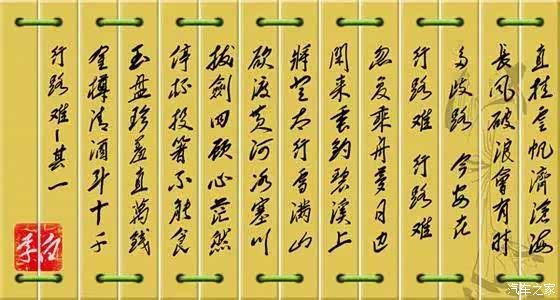 行路难-其一
金樽清酒斗十千
玉盘珍羞直萬錢
停杯投箸不能食
拔劍四顧心茫然
欲渡黄河冰塞川
將登太行雪滿山
閑来垂钓碧溪上
忽复乘舟夢日边
行路难 行路难
多歧路 今安在
長风破浪會有时
直挂雲帆濟滄海
李白
汽车之家